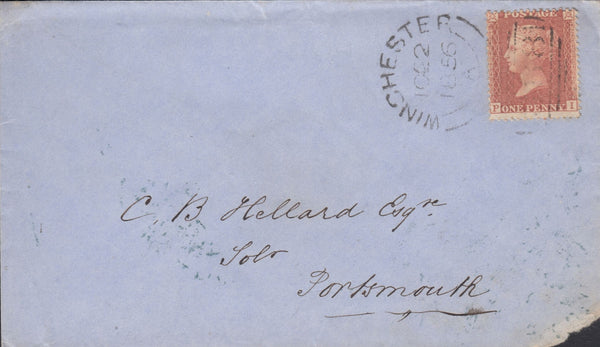 WINCHESTER
1856
POSTAGE
ONE PENNY
P I
C. B Hellard Esqre.
Solr
Portsmouth